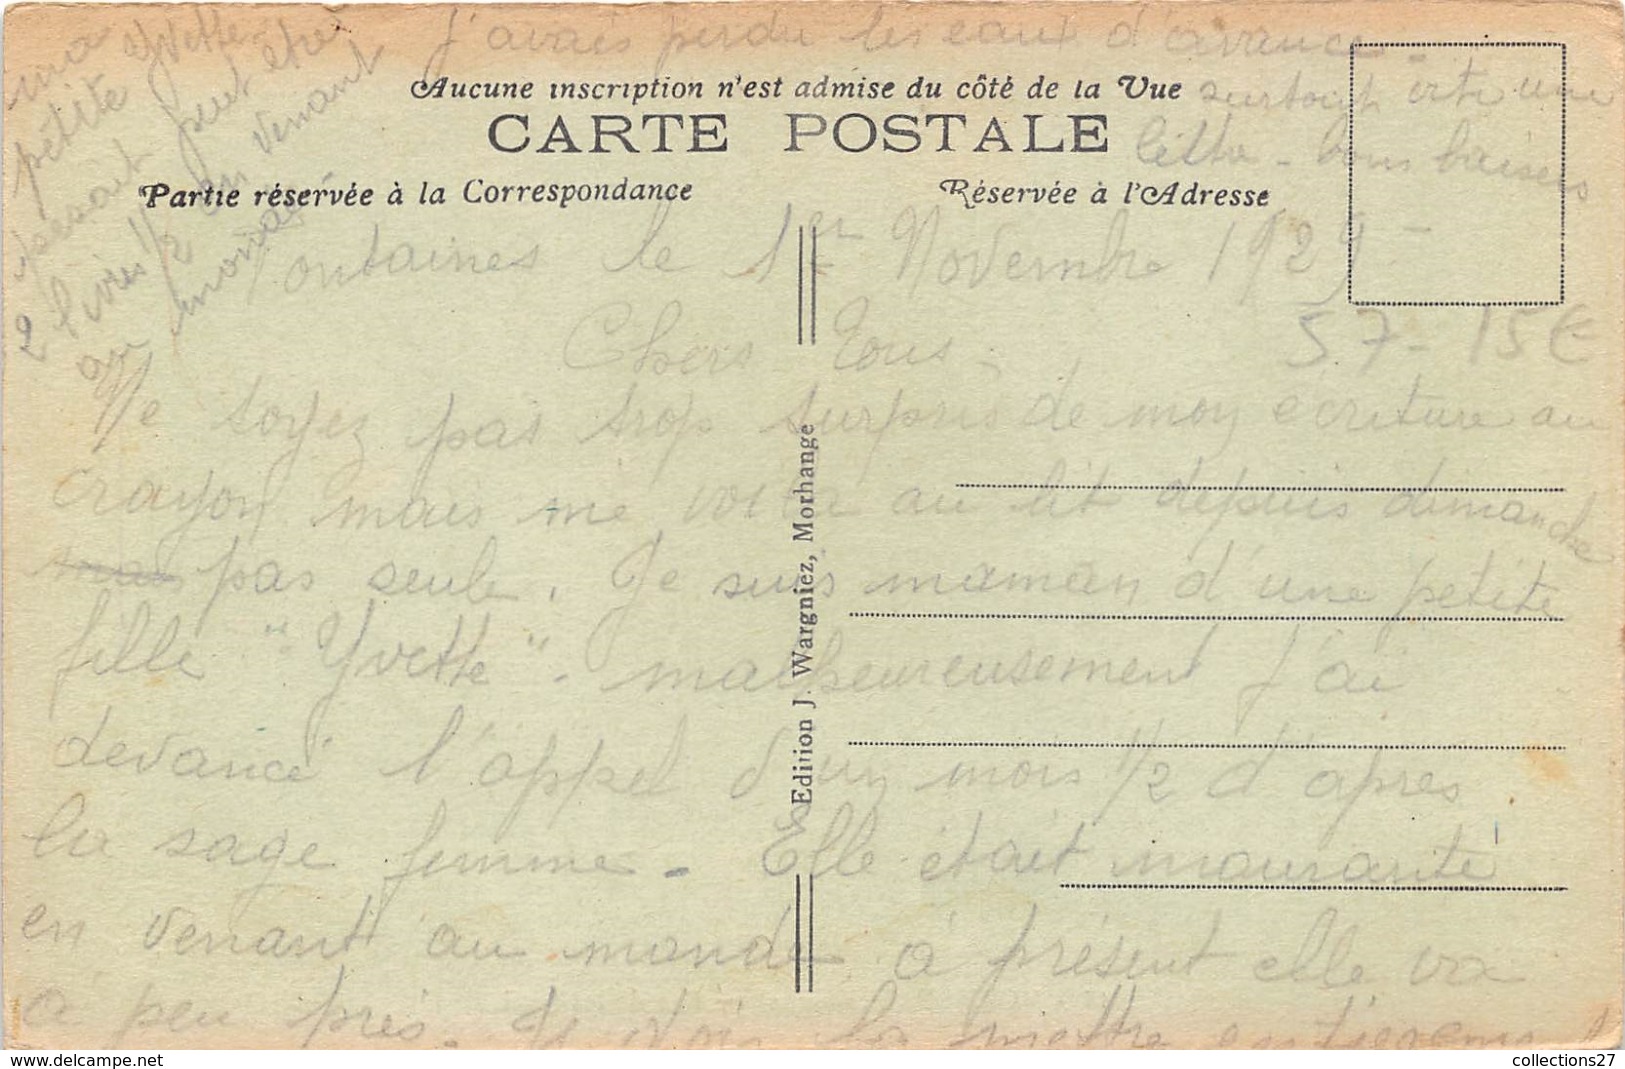 J'avais perdu les eaux d'avance -
surtout vite une
lettre - bons baisers
ma
petite Yvette
pesait peut être
2 livres 1/2 en venant
au monde -
Aucune inscription n'est admise du côté de la Vue
CARTE POSTALE
Partie réservée à la Correspondance
Réservée à l'Adresse
Fontaines le 1er Novembre 1929 -
57 - 15€
Chers Tous -
Ne soyez pas trop surpris de mon écriture au
crayon mais me voila au lit depuis dimanche
pas seule. Je suis maman d'une petite
fille "Yvette" - malheureusement j'ai
devancé l'appel d'un mois 1/2 d'apres
la sage femme - Elle était mourante
en venant au monde à présent elle va
a peu près. Je dois la mettre entierem
Edition J. Wargniez, Morhange
collections27